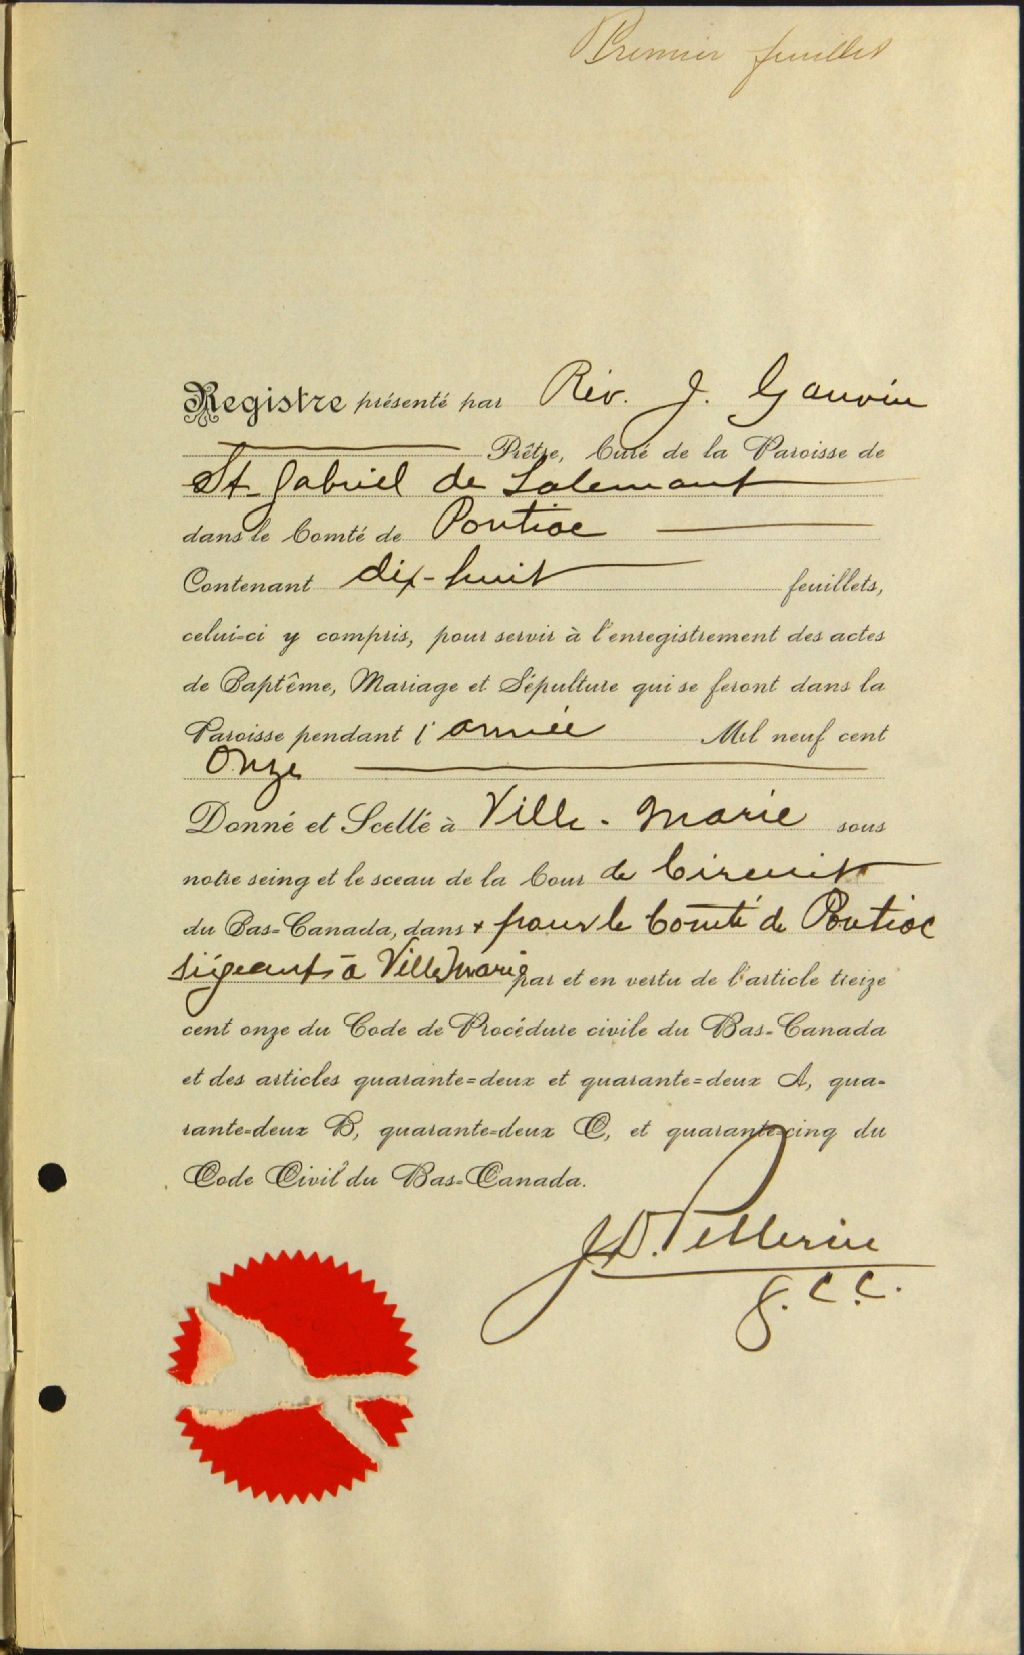 Premier feuillet
Registre présenté par Rév. J. Gauvin
Prêtre, Curé de la Paroisse de
St-Gabriel de Lalemant
dans le Comté de Pontiac
Contenant dix-huit feuillets,
celui-ci y compris, pour servir à l'enregistrement des actes
de Baptême, Mariage et Sépulture qui se feront dans la
Paroisse pendant l'année Mil neuf cent
Onze
Donné et Scellé à Ville-Marie sous
notre seing et le sceau de la Cour de Circuit
du Bas-Canada, dans & pour le Comté de Pontiac
siégeant à Ville Marie par et en vertu de l'article treize
cent onze du Code de Procédure civile du Bas-Canada
et des articles quarante=deux et quarante=deux A, qua-
rante=deux B, quarante=deux C, et quarante=cinq du
Code Civil du Bas-Canada.
J.D. Pellerin
g. C. C.